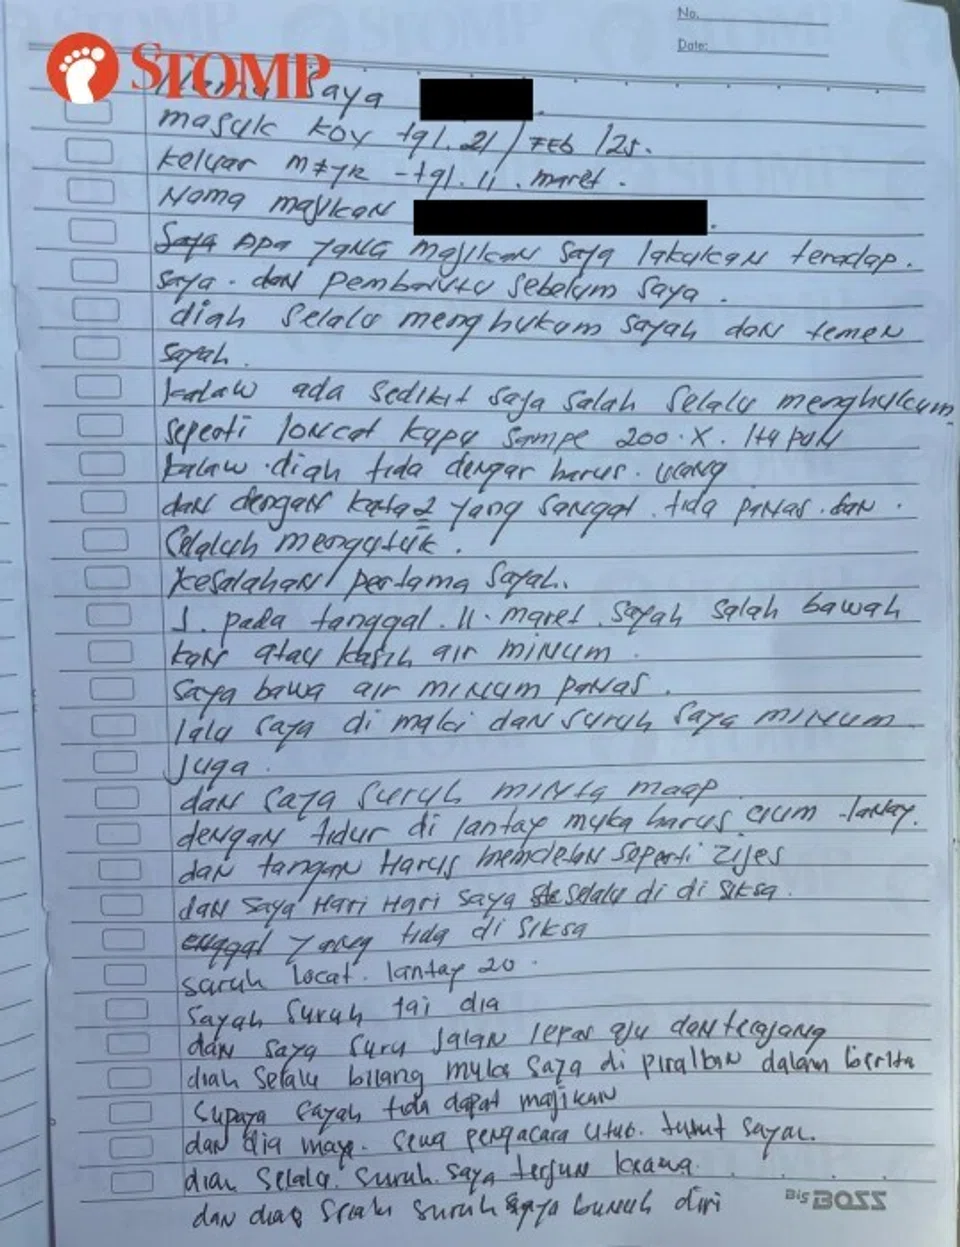 No.
Date:
STOMP
Nama Saya
masuk KOY tgl. 21 / FEB / 25.
keluar - tgl. 11 . maret .
Nama majikan .
Saya Apa YANG majikan saya lakukan teradap .
saya . dan Pembantu sebelum saya .
diah selalu menghukum sayah dan temen
sayah .
kalaw ada sedikit saja salah selalu menghukum
seperti loncat sampe 200 . X . Itu pun
kalaw . diah tida dengar harus . ulang
dan dengan kata2 yang sangat . tida pantas . dan .
selaluh mengutuk .
kesalahan pertama sayah .
1 . pada tanggal . 11 . maret . sayah salah bawah
kan atau kasih air minum .
saya bawa air minum panas .
lalu saya di maki dan suruh saya minum
juga .
dan saya suruh minta maap
dengan tidur di lantay muka harus cium lantay .
dan tangan Harus seperti
dan saya Hari Hari saya selalu di di siksa .
enggal yang tida di siksa
suruh locat . lantay 20 .
sayah suruh tai dia
dan saya suru jalan lepas aju dan telajang
diah selalu bilang muka saya di piralkan dalam berita
supaya sayah tida dapat majikan
dan dia maya . sewa pengacara utuk . tutut sayah .
diah selalu . suruh . saya terjun
dan diah selalu suruh saya bunuh diri
Bis BOSS